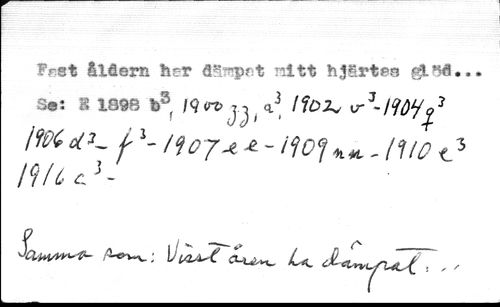 Fast åldern har dämpat mitt hjärtes glöd...
Se: E 1898 b³, 1900 zz, a³, 1902 v³-1904 q³
1906 d³- f³- 1907 e e - 1909 nn - 1910 e³
1916 c³ -
Samma som: Visst åren ha dämpat...